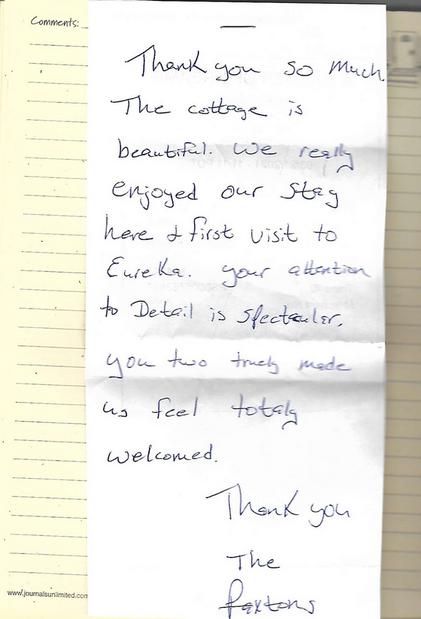 Comments:
Thank you so much.
The cottage is
beautiful. We really
enjoyed our stay
here & first visit to
Eureka. your attention
to Detail is spectauler.
you two truely made
us feel totaly
welcomed.
Thank you
The
Paxtons
www.journalsunlimited.com